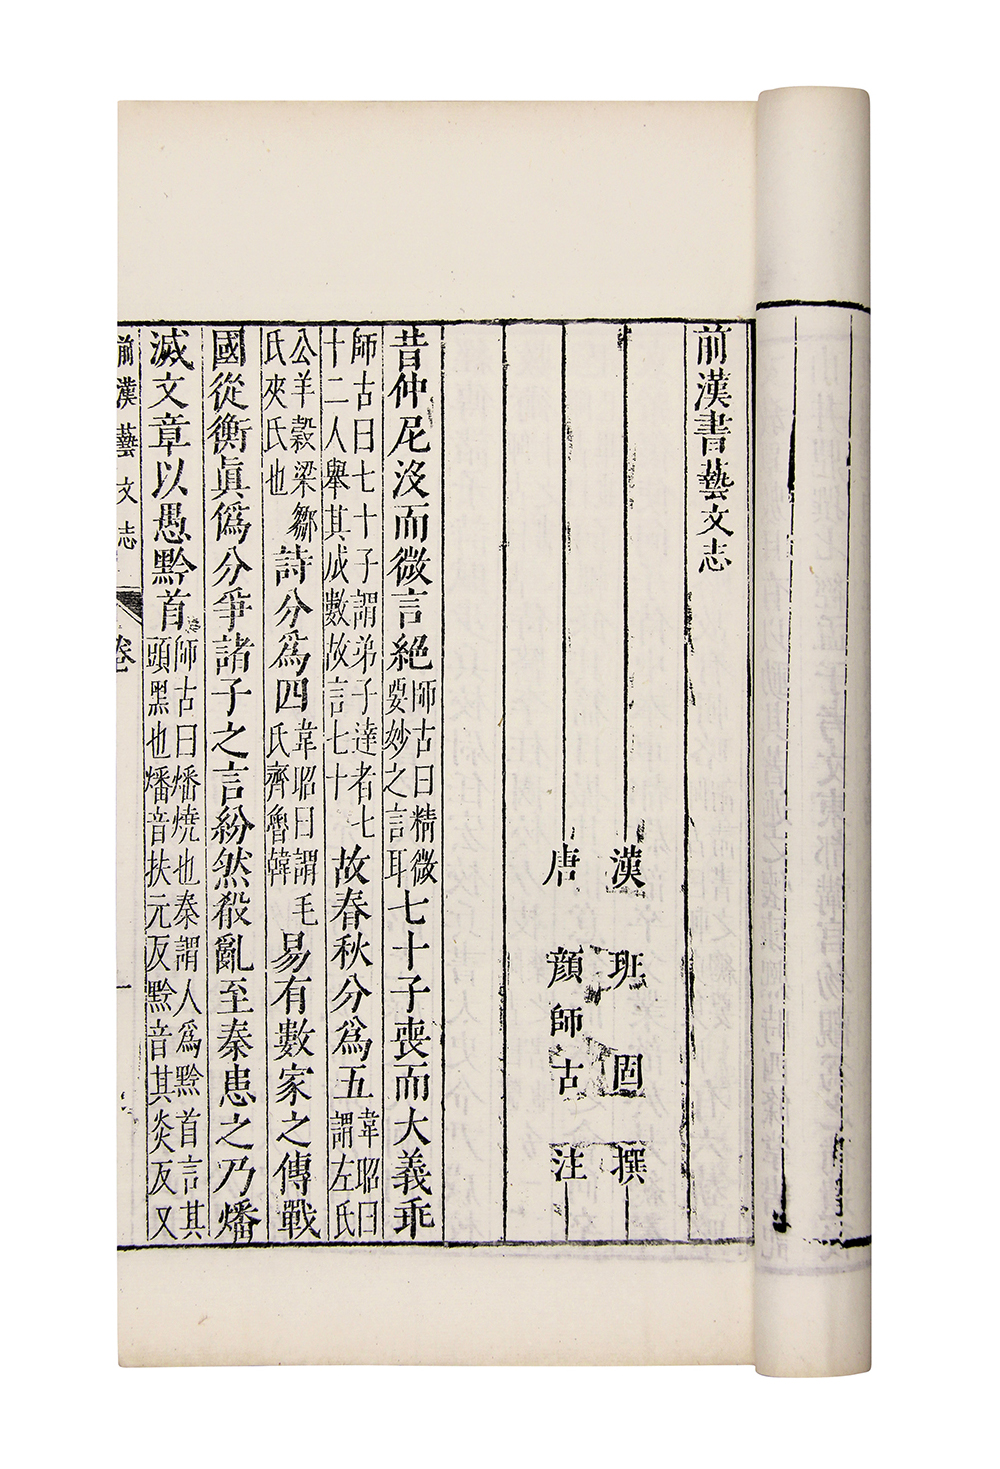 前漢書藝文志
漢 班 固 撰
唐 顔師古 注
昔仲尼没而微言絶師古曰精微要妙之言耳七十子喪而大義乖
師古曰七十子謂弟子達者七十二人舉其成數故言七十故春秋分爲五韋昭曰謂左氏
公羊穀梁鄒氏夾氏也詩分爲四韋昭曰謂毛氏齊魯韓易有數家之傳戰
國從衡眞僞分爭諸子之言紛然殽亂至秦患之乃燔
滅文章以愚黔首師古曰燔燒也秦謂人爲黔首言其頭黑也燔音扶元反黔音其炎反又
前漢藝文志 卷 一